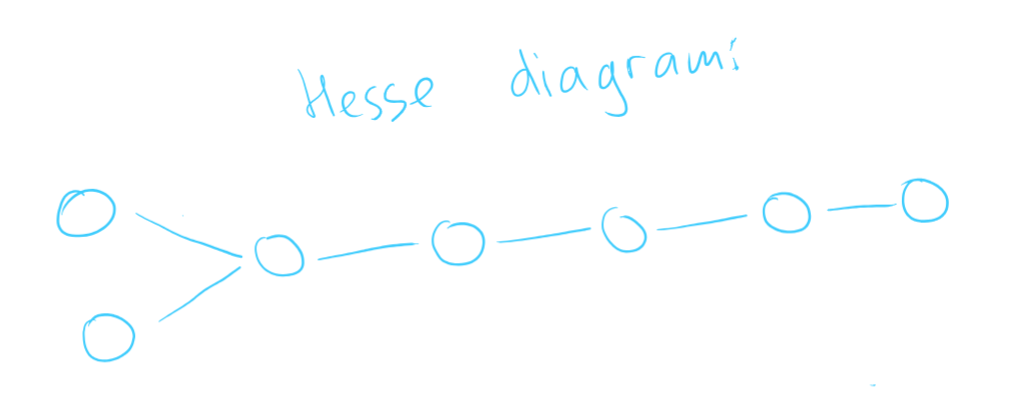 Hesse diagram: